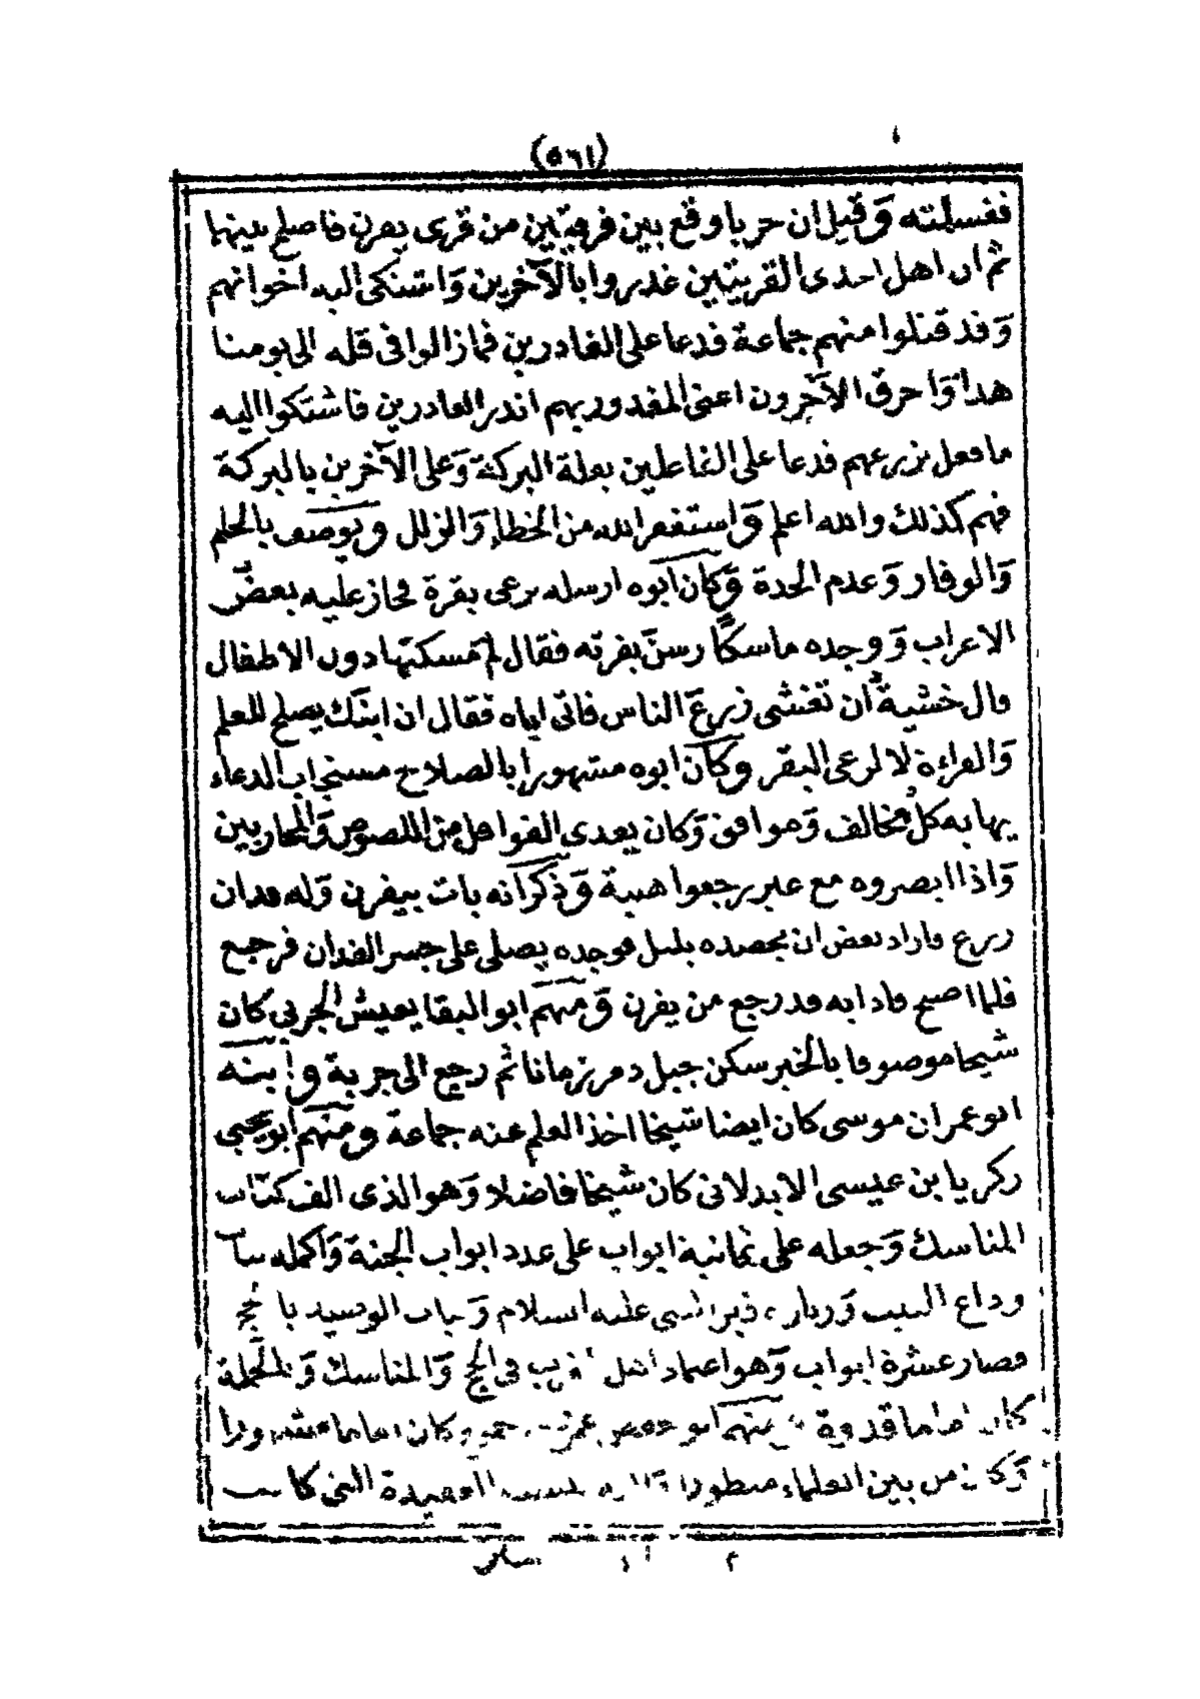 (٥٦١)
فغسلته وقيل ان حربا وقع بين فرقتين من قرى يفرن فاصلح بينهما
ثم ان اهل احدى القريتين غدروا بالآخرين واشتكى اليه اخوانهم
وقد قتلوا منهم جماعة فدعا على الغادرين فمازالوا فى قلة الى يومنا
هذا واحرق الآخرون اعنى المغدور بهم اندر الغادرين فاشتكوا اليه
ما فعل بزرعهم فدعا على الفاعلين بقلة البركة وعلى الآخرين بالبركة
فهم كذلك والله اعلم واستغفر الله من الخطاء والزلل ويوصف بالحلم
والوقار وعدم الحدة وكان ابوه ارسله يرعى بقرة فجاز عليه بعض
الاعراب ووجده ماسكا رسن بقرته فقال لم تمسكتها دون الاطفال
قال خشية ان تغشى زرع الناس فاتى اباه فقال ان ابنك يصلح للعلم
والقراءة لا لرعى البقر وكان ابوه مشهورا بالصلاح مستجاب الدعاء
يهابه كل مخالف وموافق وكان يعدى القوافل من اللصوص والمحاربين
واذا ابصروه مع عير رجعوا هيبة وذكر انه بات بيفرن وله فدان
زرع فاراد بعض ان يحصده بليل فوجده يصلى على جسر الفدان فرجع
فلما اصبح فاذا به قد رجع من يفرن ومنهم ابو البقا يعيش الجربي كان
شيخا موصوفا بالخير سكن جبل دمر زمانا ثم رجع الى جربة وابنه
ابو عمران موسى كان ايضا شيخا اخذ العلم عنه جماعة ومنهم ابو يحيى
زكريا بن عيسى الابدلانى كان شيخا فاضلا وهو الذى الف كتاب
المناسك وجعله على ثمانية ابواب على عدد ابواب الجنة واكمله بباب
وداع البيت وزيارة قبر النبى عليه السلام وباب الوصية بالحج
فصار عشرة ابواب وهو اعتماد اهل المغرب فى الحج والمناسك وبالجملة
كان اماما قدوة ومنهم ابو حفص عمر بن وكان اماما
وكان من بين العلماء منظورا العقيدة التى كانت